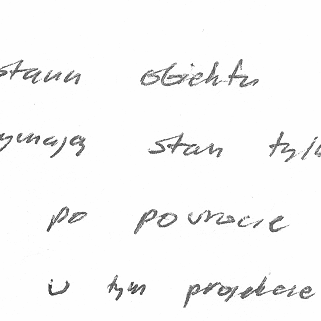 stanu obiektu
ymają stan tylk
po powrocie
w tym projekcie